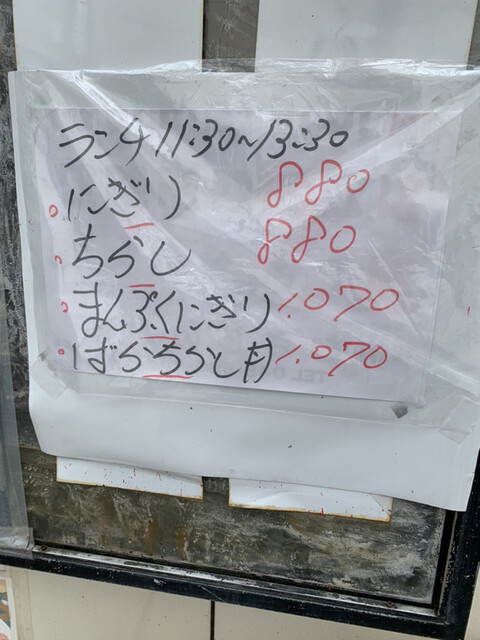 ランチ 11:30~13:30
にぎり 880
ちらし 880
まんぷくにぎり 1.070
ばらちらし 1.070